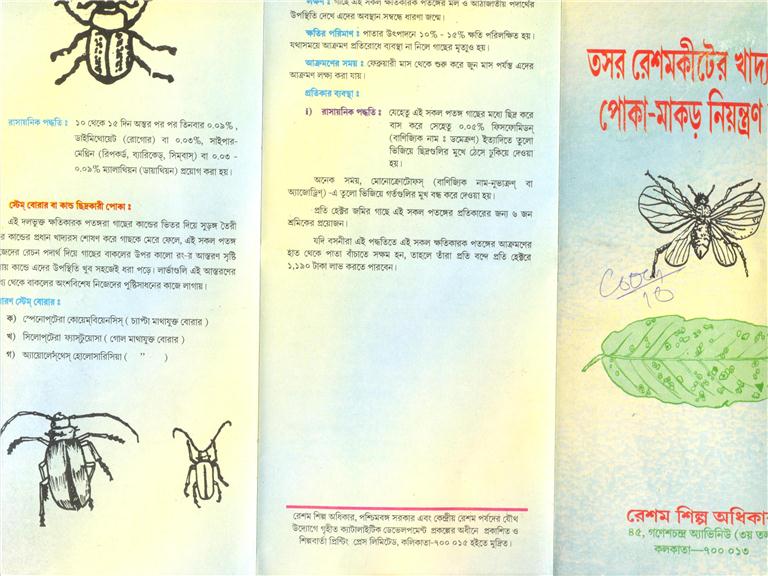 রাসায়নিক পদ্ধতি : ১০ থেকে ১৫ দিন অন্তর পর পর তিনবার ০.০৯%,
ডাইমিথোয়েট (রোগোর) বা ০.০৩%, সাইপার-
মেথ্রিন (রিপকর্ড, ব্যারিকেড, সিম্‌বাস) বা ০.০৩ -
০.০৯% ম্যালাথিয়ন (ডায়াথিয়ন) প্রয়োগ করা হয়।
স্টেম্ বোরার বা কান্ড ছিদ্রকারী পোকা :
এই দলভুক্ত ক্ষতিকারক পতঙ্গরা গাছের কান্ডের ভিতর দিয়ে সুড়ঙ্গ তৈরী
র কান্ডের প্রধান খাদ্যরস শোষণ করে গাছকে মেরে ফেলে, এই সকল পতঙ্গ
জেদের রেচন পদার্থ দিয়ে গাছের বাকলের উপর কালো রং-র আস্তরণ সৃষ্টি
ায় কান্ডে এদের উপস্থিতি খুব সহজেই ধরা পড়ে। লার্ভাগুলি এই আস্তরণের
্য থেকে বাকলের অংশবিশেষ নিজেদের পুষ্টিসাধনের কাজে লাগায়।
ারণ স্টেম্ বোরার :
ক) স্পেনোপ্‌টেরা কোয়েম্‌বিয়েনসিস্ ( চ্যাপ্টা মাথাযুক্ত বোরার )
খ) সিলোপ্‌টেরা ফ্যাস্টুয়োসা ( গোল মাথাযুক্ত বোরার )
গ) অ্যায়োলেস্‌থেস্ হোলোসারিসিয়া ( " )
লক্ষণ : গাছে এই সকল ক্ষতিকারক পতঙ্গের মল ও আঠাজাতীয় পদার্থের
উপস্থিতি দেখে এদের অবস্থান সম্বন্ধে ধারণা জন্মে।
ক্ষতির পরিমাণ : পাতার উৎপাদনে ১০% - ১৫% ক্ষতি পরিলক্ষিত হয়।
যথাসময়ে আক্রমণ প্রতিরোধে ব্যবস্থা না নিলে গাছের মৃত্যুও হয়।
আক্রমণের সময় : ফেব্রুয়ারী মাস থেকে শুরু করে জুন মাস পর্যন্ত এদের
আক্রমণ লক্ষ্য করা যায়।
প্রতিকার ব্যবস্থা :
i) রাসায়নিক পদ্ধতি : যেহেতু এই সকল পতঙ্গ গাছের মধ্যে ছিদ্র করে
বাস করে সেহেতু ০.০৫% ফিসফোমিডন্
(বাণিজ্যিক নাম : ডমেক্রণ) ইত্যাদিতে তুলো
ভিজিয়ে ছিদ্রগুলির মুখে ঠেসে ঢুকিয়ে দেওয়া
হয়।
অনেক সময়, মোনোক্রোটোফস্ (বাণিজ্যিক নাম-নুভাক্রণ্ বা
অ্যাজোড্রিণ) -এ তুলো ভিজিয়ে গর্তগুলির মুখ বন্ধ করে দেওয়া হয়।
প্রতি হেক্টর জমির গাছে এই সকল পতঙ্গের প্রতিকারের জন্য ৬ জন
শ্রমিকের প্রয়োজন।
যদি বসনীরা এই পদ্ধতিতে এই সকল ক্ষতিকারক পতঙ্গের আক্রমণের
হাত থেকে পাতা বাঁচাতে সক্ষম হন, তাহলে তাঁরা প্রতি বন্দে প্রতি হেক্টরে
১,১৯০ টাকা লাভ করতে পারবেন।
রেশম শিল্প অধিকার, পশ্চিমবঙ্গ সরকার এবং কেন্দ্রীয় রেশম পর্ষদের যৌথ
উদ্যোগে গৃহীত ক্যাটালাইটিক ডেভেলপমেন্ট প্রকল্পের অধীনে প্রকাশিত ও
শিল্পবার্তা প্রিন্টিং প্রেস লিমিটেড, কলিকাতা-৭০০ ০১৫ হইতে মুদ্রিত।
তসর রেশমকীটের খাদ্য
পোকা-মাকড় নিয়ন্ত্রণ
রেশম শিল্প অধিকার
৪৫, গণেশচন্দ্র অ্যাভিনিউ (৩য় তল
কলকাতা—৭০০ ০১৩